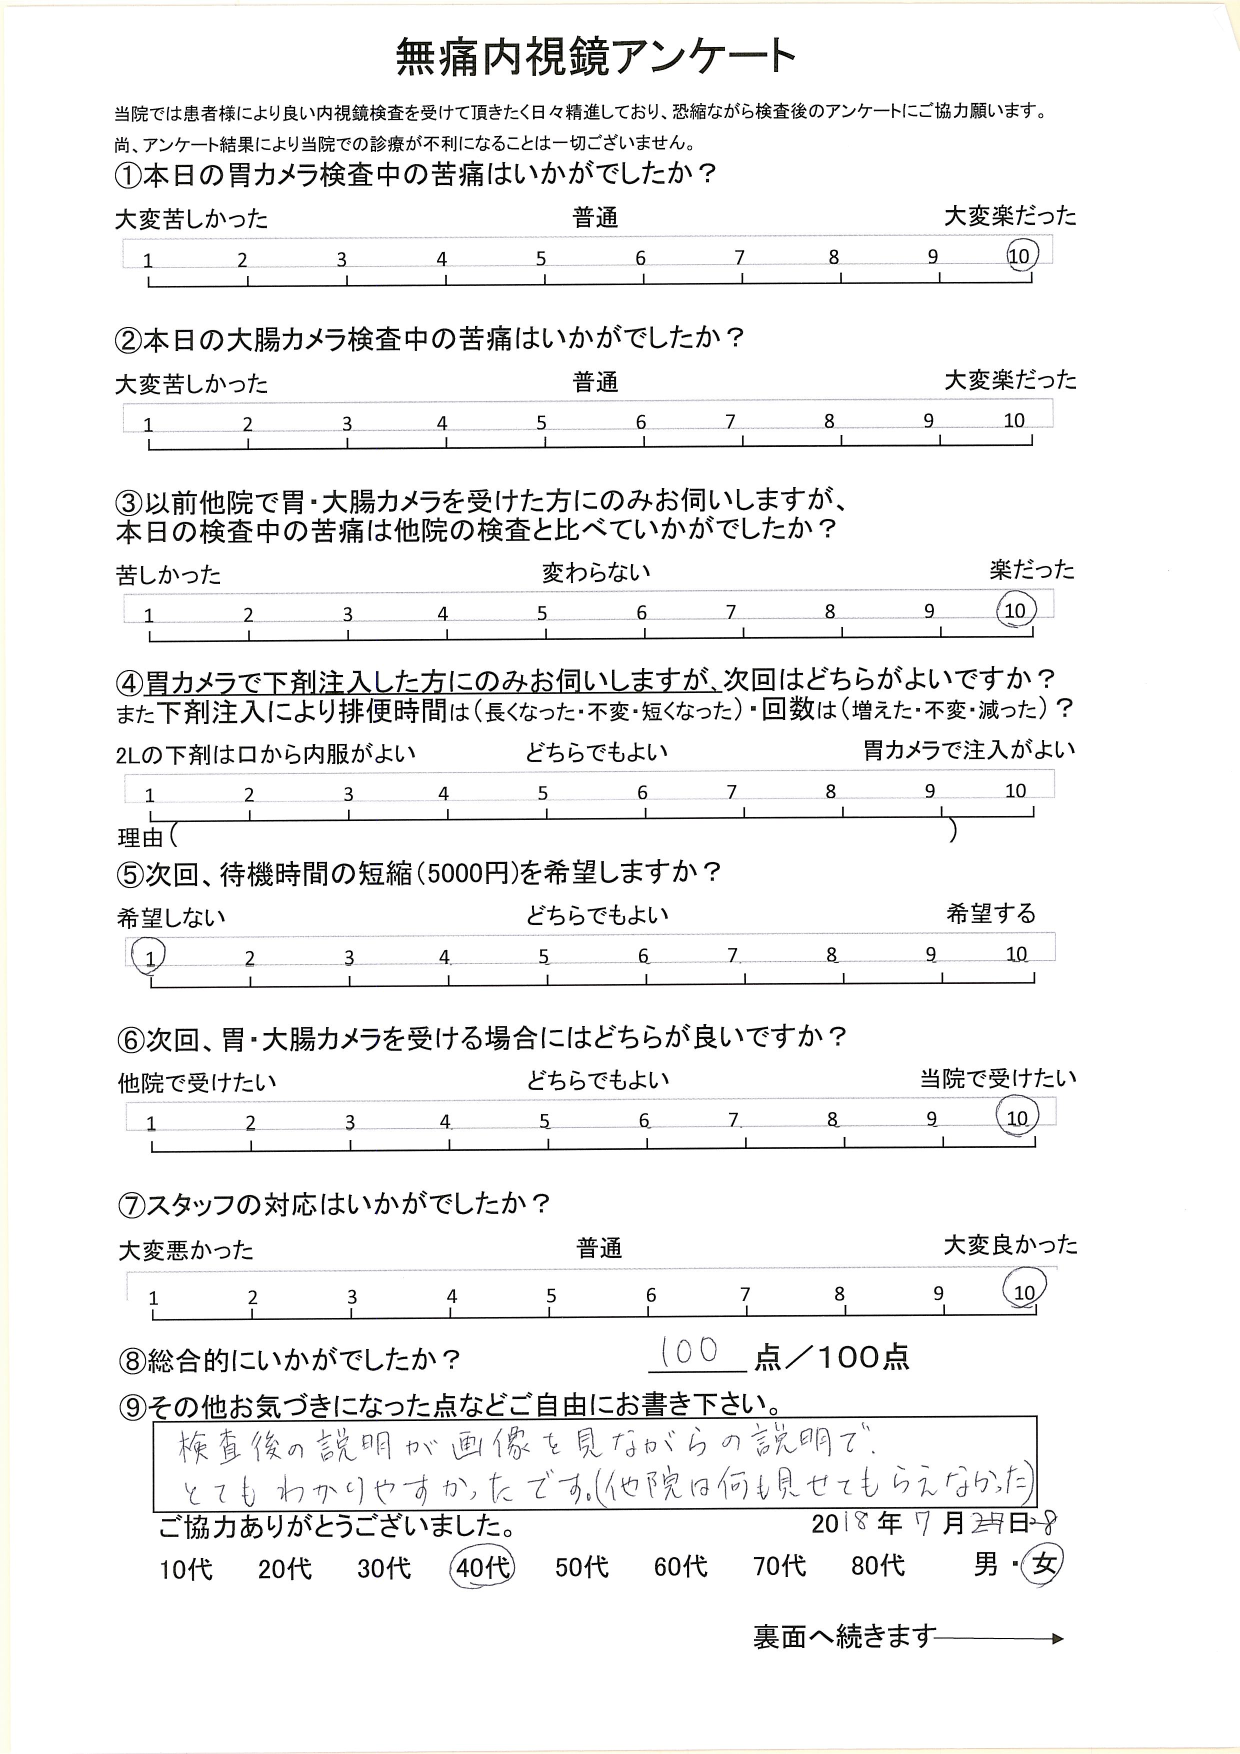 無痛内視鏡アンケート
当院では患者様により良い内視鏡検査を受けて頂きたく日々精進しており、恐縮ながら検査後のアンケートにご協力願います。
尚、アンケート結果により当院での診療が不利になることは一切ございません。
①本日の胃カメラ検査中の苦痛はいかがでしたか？
大変苦しかった 普通 大変楽だった
1 2 3 4 5 6 7 8 9 10
②本日の大腸カメラ検査中の苦痛はいかがでしたか？
大変苦しかった 普通 大変楽だった
1 2 3 4 5 6 7 8 9 10
③以前他院で胃・大腸カメラを受けた方にのみお伺いしますが、
本日の検査中の苦痛は他院の検査と比べていかがでしたか？
苦しかった 変わらない 楽だった
1 2 3 4 5 6 7 8 9 10
④胃カメラで下剤注入した方にのみお伺いしますが、次回はどちらがよいですか？
また下剤注入により排便時間は（長くなった・不変・短くなった）・回数は（増えた・不変・減った）？
2Lの下剤は口から内服がよい どちらでもよい 胃カメラで注入がよい
1 2 3 4 5 6 7 8 9 10
理由（ ）
⑤次回、待機時間の短縮（5000円）を希望しますか？
希望しない どちらでもよい 希望する
1 2 3 4 5 6 7 8 9 10
⑥次回、胃・大腸カメラを受ける場合にはどちらが良いですか？
他院で受けたい どちらでもよい 当院で受けたい
1 2 3 4 5 6 7 8 9 10
⑦スタッフの対応はいかがでしたか？
大変悪かった 普通 大変良かった
1 2 3 4 5 6 7 8 9 10
⑧総合的にいかがでしたか？ 100 点／100点
⑨その他お気づきになった点などご自由にお書き下さい。
検査後の説明が画像を見ながらの説明で、
とてもわかりやすかったです。（他院は何も見せてもらえなかった）
ご協力ありがとうございました。 2018年 7月 日28
10代 20代 30代 40代 50代 60代 70代 80代 男・女
裏面へ続きます